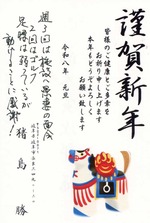 謹賀新年
皆様のご健康とご多幸を
お祈り申し上げます
本年もどうぞよろしく
お願い致します
令和八年 元旦
週3回は
2回はゴルフ
足腰は弱っているが
動けることに感謝!
猪島 勝